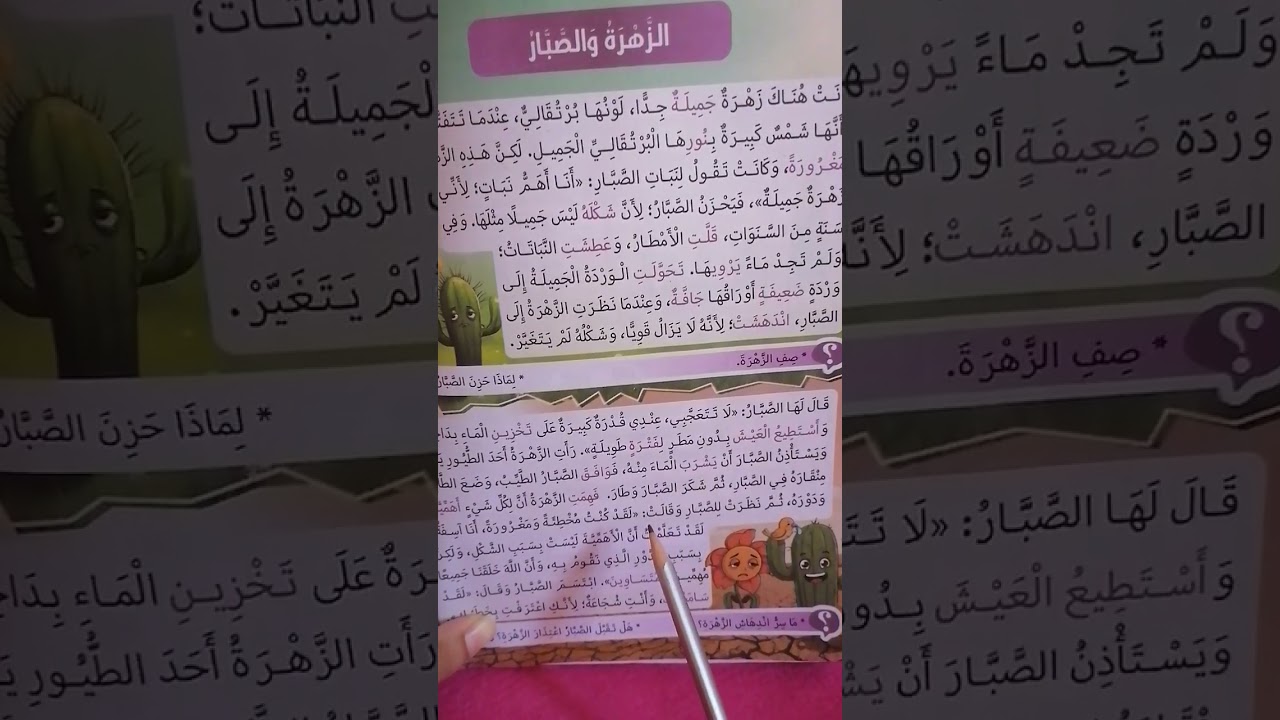 الزَّهْرَةُ وَالصَّبَّارُ
هُنَاكَ زَهْرَةٌ جَمِيلَةٌ جِدًّا، لَوْنُهَا بُرْتُقَالِيٌّ، عِنْدَمَا
أَنَّهَا شَمْسٌ كَبِيرَةٌ بِنُورِهَا الْبُرْتُقَالِيِّ الْجَمِيلِ. لَكِنَّ هَذِهِ
مَغْرُورَةً، وَكَانَتْ تَقُولُ لِنَبَاتِ الصَّبَّارِ: «أَنَا أَهَمُّ نَبَاتٍ؛ لِأَنِّي
زَهْرَةٌ جَمِيلَةٌ»، فَيَحْزَنُ الصَّبَّارُ؛ لِأَنَّ شَكْلَهُ لَيْسَ جَمِيلًا مِثْلَهَا. وَفِي
سَنَةٍ مِنَ السَّنَوَاتِ، قَلَّتِ الْأَمْطَارُ، وَعَطِشَتِ النَّبَاتَاتُ؛
وَلَمْ تَجِدْ مَاءً يَرْوِيهَا. تَحَوَّلَتِ الْوَرْدَةُ الْجَمِيلَةُ إِلَى
وَرْدَةٍ ضَعِيفَةٍ أَوْرَاقُهَا جَافَّةٌ، وَعِنْدَمَا نَظَرَتِ الزَّهْرَةُ إِلَى
الصَّبَّارِ، انْدَهَشَتْ؛ لِأَنَّهُ لَا يَزَالُ قَوِيًّا، وَشَكْلُهُ لَمْ يَتَغَيَّرْ.
* صِفِ الزَّهْرَةَ.
* لِمَاذَا حَزِنَ الصَّبَّارُ
قَالَ لَهَا الصَّبَّارُ: «لَا تَتَعَجَّبِي، عِنْدِي قُدْرَةٌ كَبِيرَةٌ عَلَى تَخْزِينِ الْمَاءِ
وَأَسْتَطِيعُ الْعَيْشَ بِدُونِ مَطَرٍ لِفَتْرَةٍ طَوِيلَةٍ». رَأَتِ الزَّهْرَةُ أَحَدَ الطُّيُورِ
وَيَسْتَأْذِنُ الصَّبَّارَ أَنْ يَشْرَبَ الْمَاءَ مِنْهُ، فَوَافَقَ الصَّبَّارُ الطَّيِّبُ، وَضَعَ
مِنْقَارَهُ فِي الصَّبَّارِ، ثُمَّ شَكَرَ الصَّبَّارَ وَطَارَ. فَهِمَتِ الزَّهْرَةُ أَنَّ لِكُلِّ شَيْءٍ
وَدَوْرَهُ، ثُمَّ نَظَرَتْ لِلصَّبَّارِ وَقَالَتْ: «لَقَدْ كُنْتُ مُخْطِئَةً وَمَغْرُورَةً، أَنَا
لَقَدْ أَنَّ الْأَهَمِّيَّةَ لَيْسَتْ بِسَبَبِ الشَّكْلِ،
الَّذِي نَقُومُ بِهِ، وَأَنَّ اللَّهَ خَلَقَنَا
ابْتَسَمَ الصَّبَّارُ وَقَالَ: «لَقَدْ
وَأَنْتِ شُجَاعَةٌ؛ لِأَنَّكِ اعْتَرَفْتِ
* مَا سِرُّ انْدِهَاشِ الزَّهْرَةِ؟
* هَلْ تَقَبَّلَ الصَّبَّارُ اعْتِذَارَ الزَّهْرَةِ؟